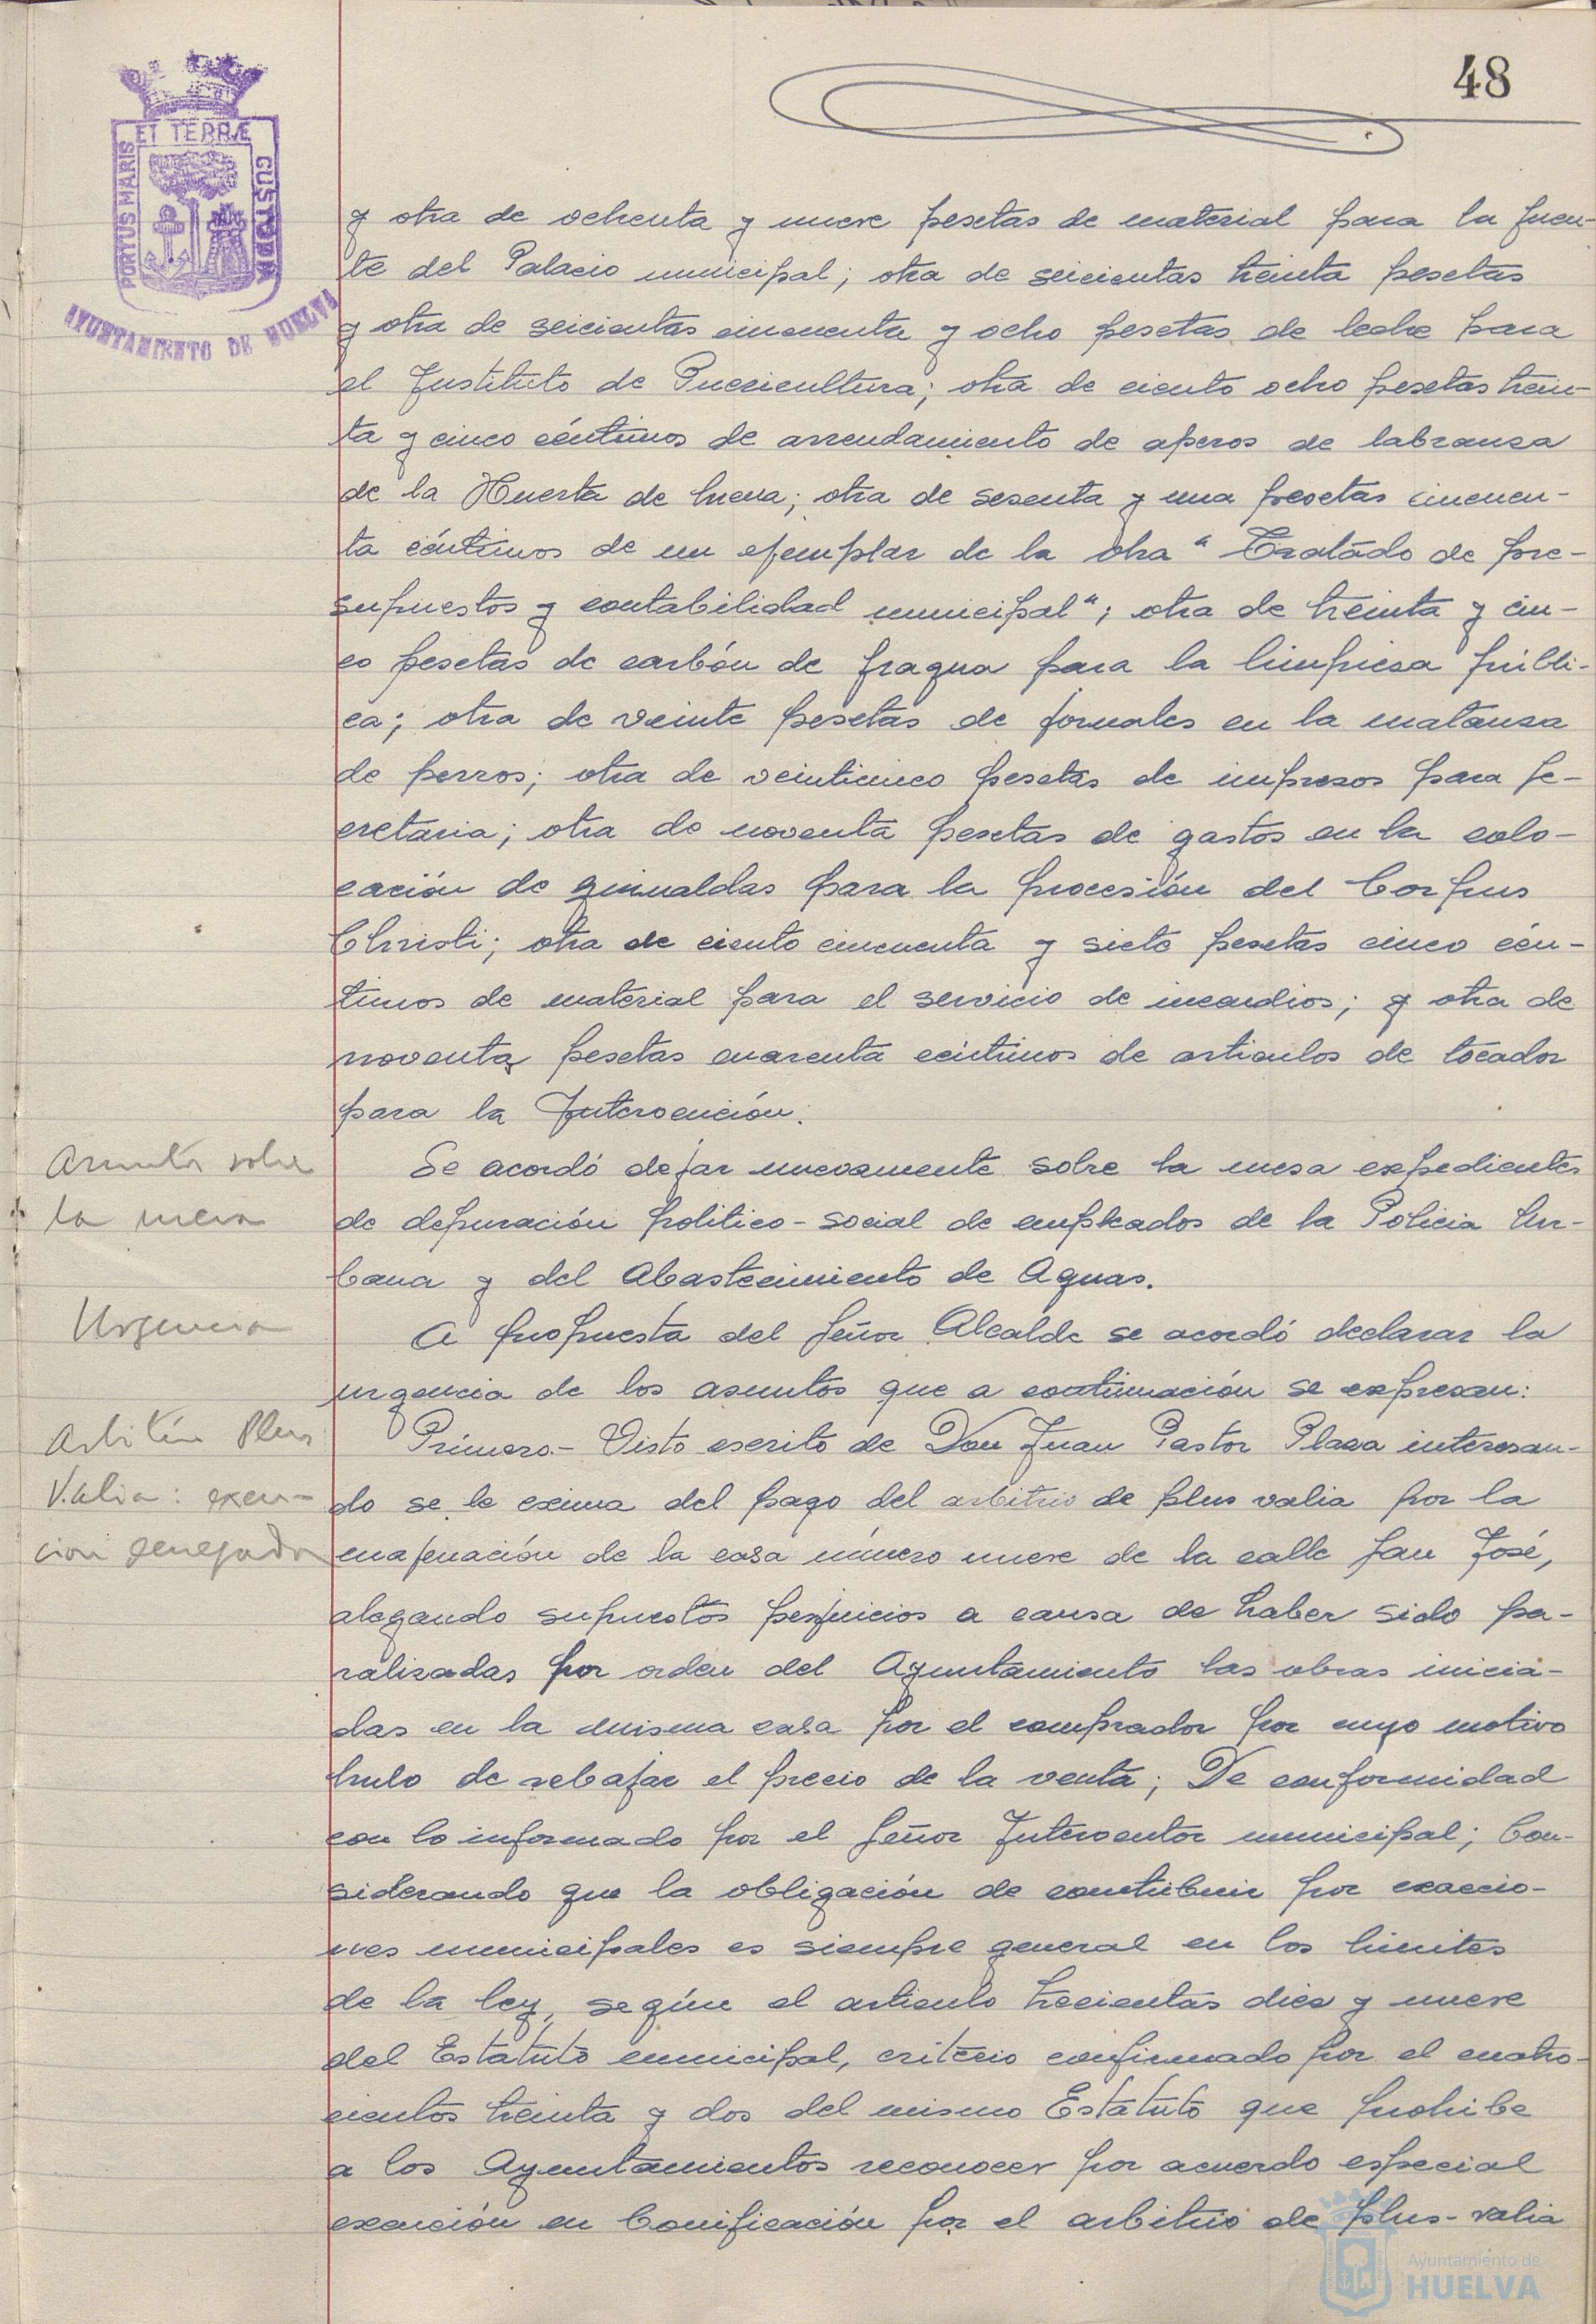 48
PORTUS MARIS ET TERRÆ CUSTODIA
AYUNTAMIENTO DE HUELVA
y otra de ochenta y nueve pesetas de material para la fuen-
te del Palacio municipal; otra de seicientas treinta pesetas
y otra de seicientas cincuenta y ocho pesetas de leche para
el Instituto de Puericultura; otra de ciento ocho pesetas trein-
ta y cinco céntimos de arrendamiento de aperos de labranza
de la Huerta de Mena; otra de sesenta y una pesetas cincuen-
ta céntimos de un ejemplar de la obra "Tratado de pre-
supuestos y contabilidad municipal"; otra de treinta y cin-
co pesetas de carbón de fragua para la limpieza públi-
ca; otra de veinte pesetas de jornales en la matanza
de perros; otra de veinticinco pesetas de impresos para Se-
cretaria; otra de noventa pesetas de gastos en la colo-
cación de guirnaldas para la procesión del Corpus
Christi; otra de ciento cincuenta y siete pesetas cinco cén-
timos de material para el servicio de incendios; y otra de
noventa pesetas cuarenta céntimos de articulos de tocador
para la Intervención.
Asuntos sobre
la mesa
Se acordó dejar nuevamente sobre la mesa expedientes
de depuración politico-social de empleados de la Policia Ur-
bana y del Abastecimiento de Aguas.
Urgencia
A propuesta del Señor Alcalde se acordó declarar la
urgencia de los asuntos que a continuación se expresan:
Arbitrio Plus
Valia: exen-
cion denegada
Primero.- Visto escrito de Don Juan Pastor Plaza interesan-
do se le exima del pago del arbitrio de plus valia por la
enajenación de la casa número nueve de la calle San José,
alegando supuestos perjuicios a causa de haber sido pa-
ralizadas por orden del Ayuntamiento las obras inicia-
das en la misma casa por el comprador por cuyo motivo
hubo de rebajar el precio de la venta; De conformidad
con lo informado por el Señor Interventor municipal; Con-
siderando que la obligación de contribuir por exaccio-
nes municipales es siempre general en los limites
de la ley, según el articulo trecientas diez y nueve
del Estatuto municipal, criterio confirmado por el cuatro-
cientos treinta y dos del mismo Estatuto que prohibe
a los Ayuntamientos reconocer por acuerdo especial
exención en bonificación por el arbitrio de plus-valia
Ayuntamiento de
HUELVA